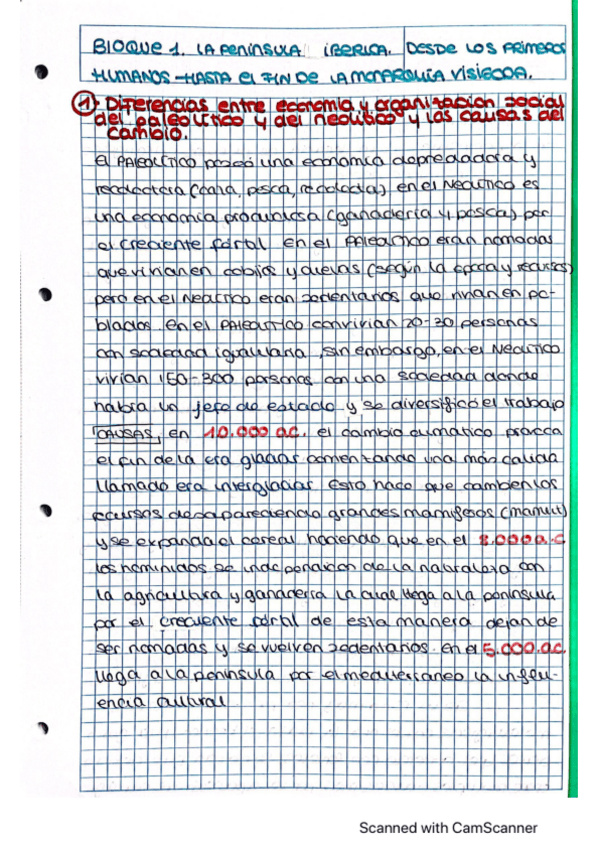 BLOQUE 1. LA PENÍNSULA IBERICA. DESDE LOS PRIMEROS
HUMANOS HASTA EL FIN DE LA MONARQUÍA VISIGODA.
① Diferencias entre economía y organización social
del paleolítico y del neolítico y las causas del
cambio.
El PALEOLÍTICO poseó una economía depredadora y
recolectora (caza, pesca, recolecta) en el Neolítico es
una economía productiva (ganadería y pesca) por
el creciente fértal En el PALEOLÍTICO eran nomadas
que vivian en cobijos y cuevas (según la epoca y recursos)
pero en el Neolítico eran sedentarios que vivian en po-
blados. En el PALEOLÍTICO convivian 20-30 personas
con sociedad igualitaria, sin embargo, en el Neolítico
vivian 150-300 personas con una sociedad donde
había un jefe de estado y se diversificó el trabajo
CAUSAS, en 10.000 a.C. el cambio climático provoca
el fin de la era glaciar comentando una más calida
llamado era interglaciar Esto hace que cambien los
recursos desapareciendo grandes mamiferos (mamut)
y se expanda el cereal haciendo que en el 8.000 a.C
los hominidos se independicen de la naturaleza con
la agricultura y ganadería la cual llega a la península
por el creciente fértal de esta manera dejan de
ser nomadas y se vuelven sedentarios. En el 5.000.a.C.
llega a la península por el mediterraneo la influ-
encia cultural
Scanned with CamScanner